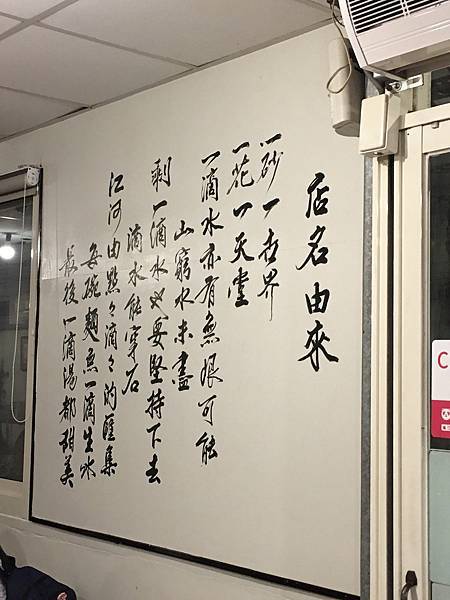 店名由來
一砂一世界
一花一天堂
一滴水亦有無限可能
山窮水未盡
剩一滴水也要堅持下去
滴水能穿石
江河由點々滴々的匯集
每碗麵無一滴生水
最後一滴湯都甜美
C